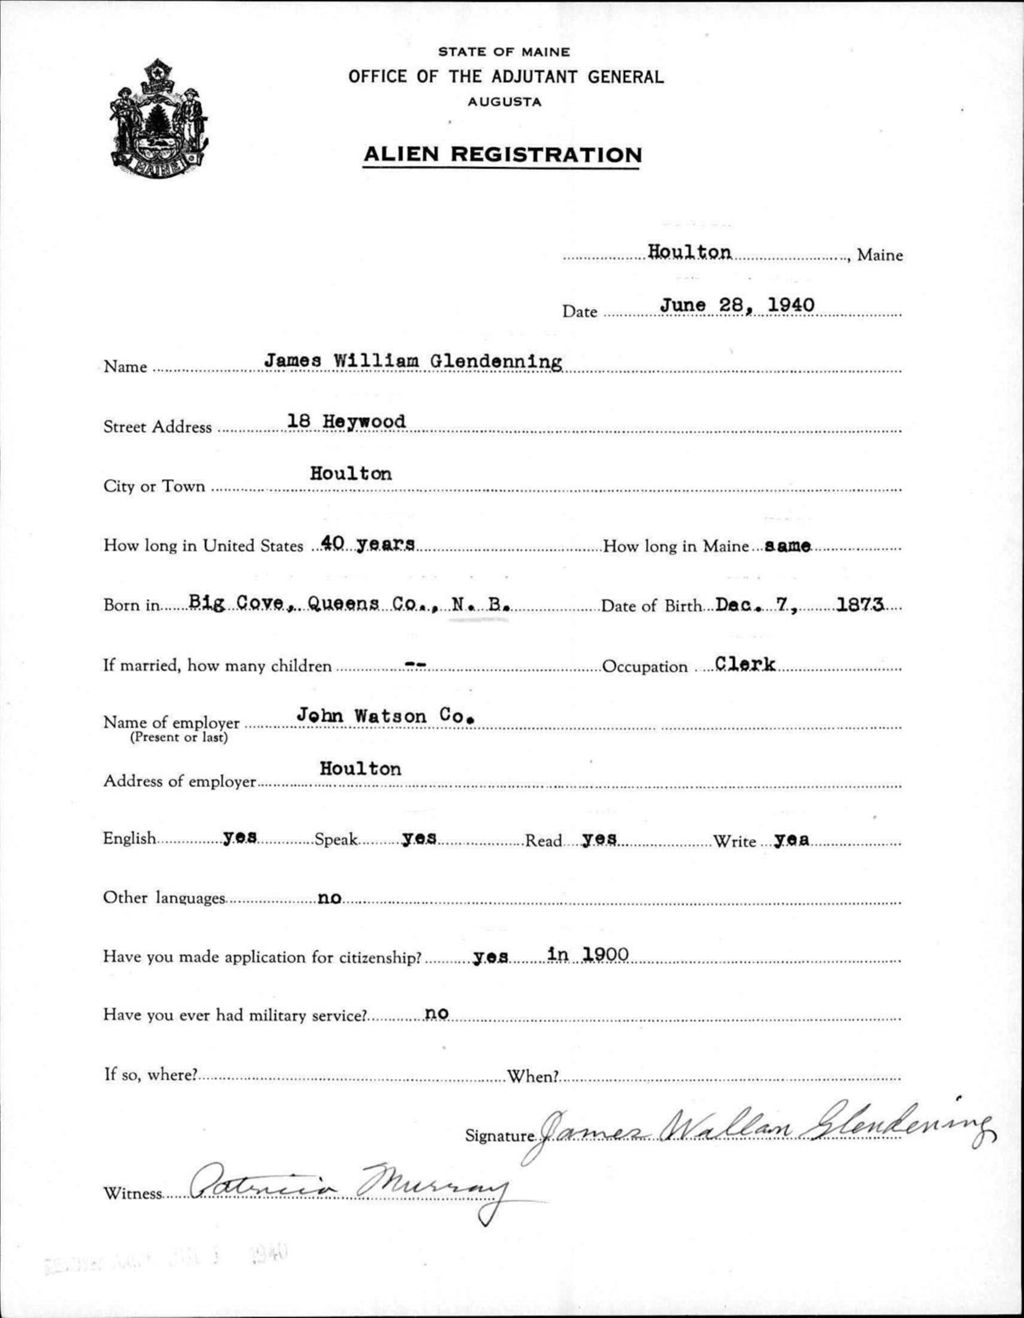 STATE OF MAINE
OFFICE OF THE ADJUTANT GENERAL
AUGUSTA
ALIEN REGISTRATION
MAINE
Houlton, Maine
Date June 28, 1940
Name James William Glendenning
Street Address 18 Heywood
City or Town Houlton
How long in United States 40 years How long in Maine same
Born in Big Cove, Queens Co., N. B. Date of Birth Dec. 7, 1873
If married, how many children -- Occupation Clerk
Name of employer John Watson Co.
(Present or last)
Address of employer Houlton
English yes Speak yes Read yes Write yea
Other languages no
Have you made application for citizenship? yes in 1900
Have you ever had military service? no
If so, where? When?
Signature James Wallan Glendening
Witness Patricia Murray